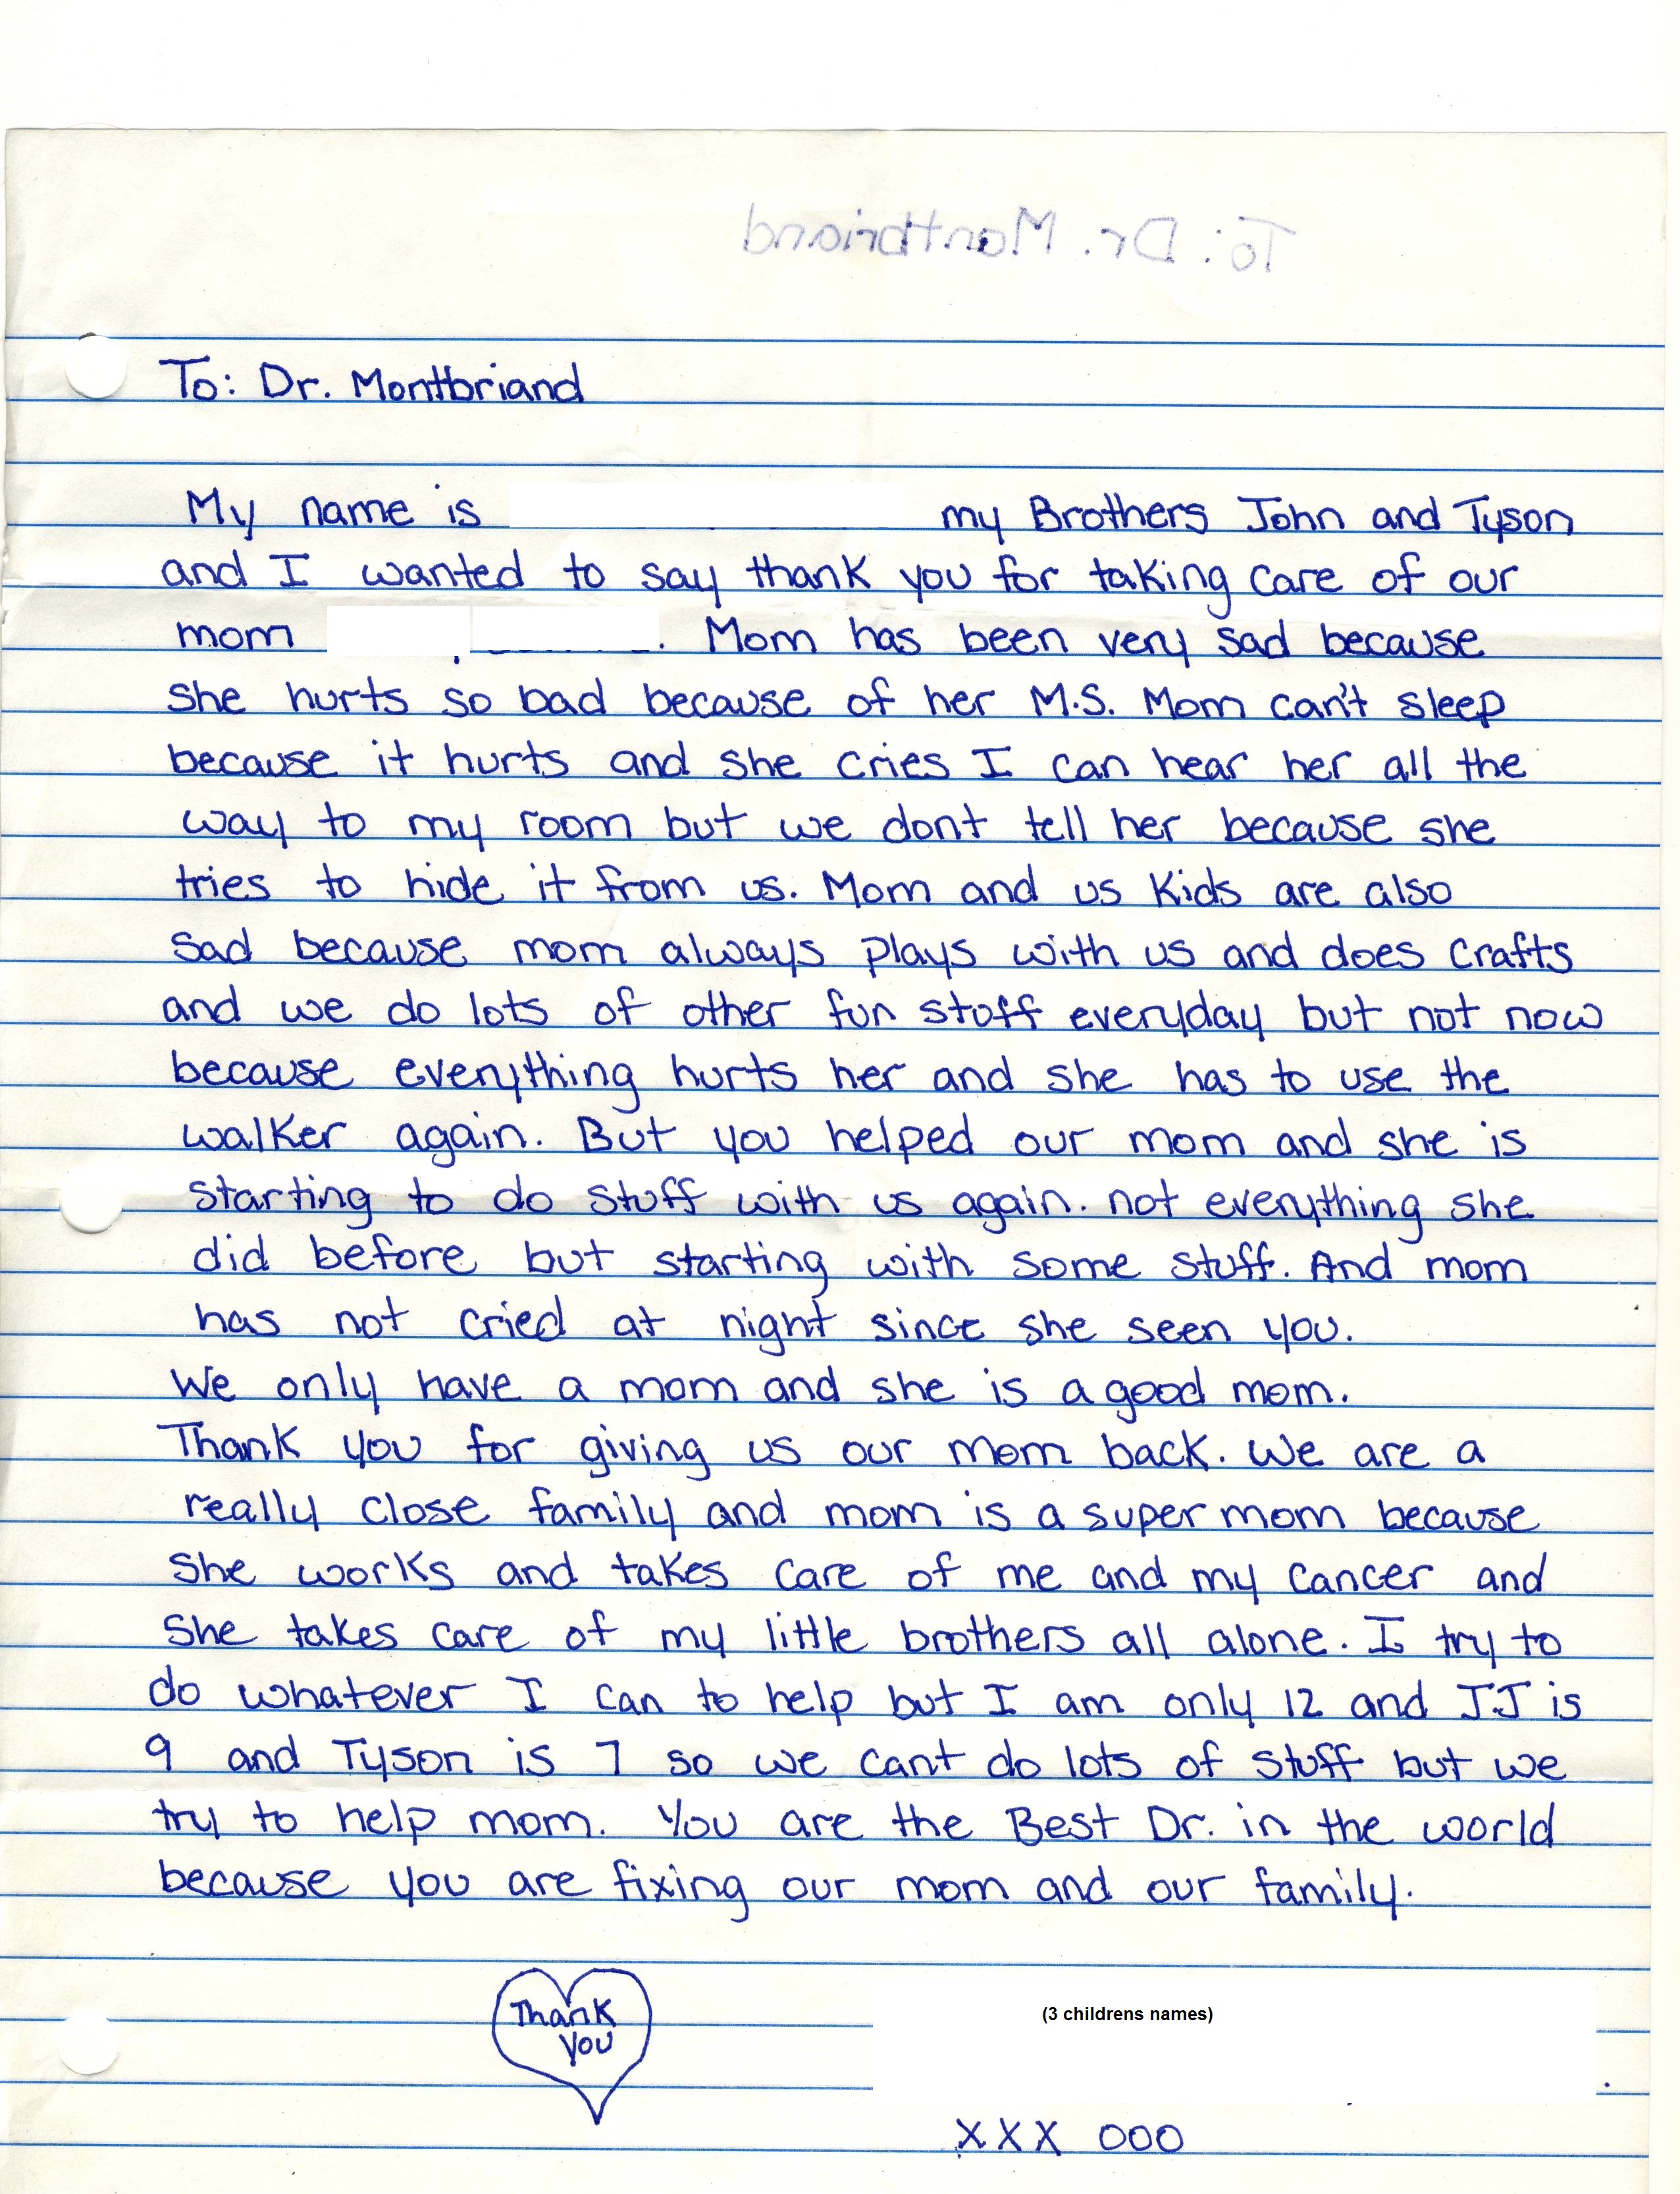 To: Dr. Montbriand
To: Dr. Montbriand
My name is my Brothers John and Tyson
and I wanted to say thank you for taking care of our
mom . Mom has been very sad because
she hurts so bad because of her M.S. Mom can't sleep
because it hurts and she cries I can hear her all the
way to my room but we dont tell her because she
tries to hide it from us. Mom and us Kids are also
sad because mom always plays with us and does crafts
and we do lots of other fun stuff everyday but not now
because everything hurts her and she has to use the
walker again. But you helped our mom and she is
starting to do stuff with us again. not everything she
did before but starting with some stuff. And mom
has not cried at night since she seen you.
We only have a mom and she is a good mom.
Thank you for giving us our mom back. We are a
really close family and mom is a super mom because
she works and takes care of me and my cancer and
she takes care of my little brothers all alone. I try to
do whatever I can to help but I am only 12 and JJ is
9 and Tyson is 7 so we cant do lots of stuff but we
try to help mom. You are the Best Dr. in the world
because you are fixing our mom and our family.
Thank
you
(3 childrens names)
XXX OOO